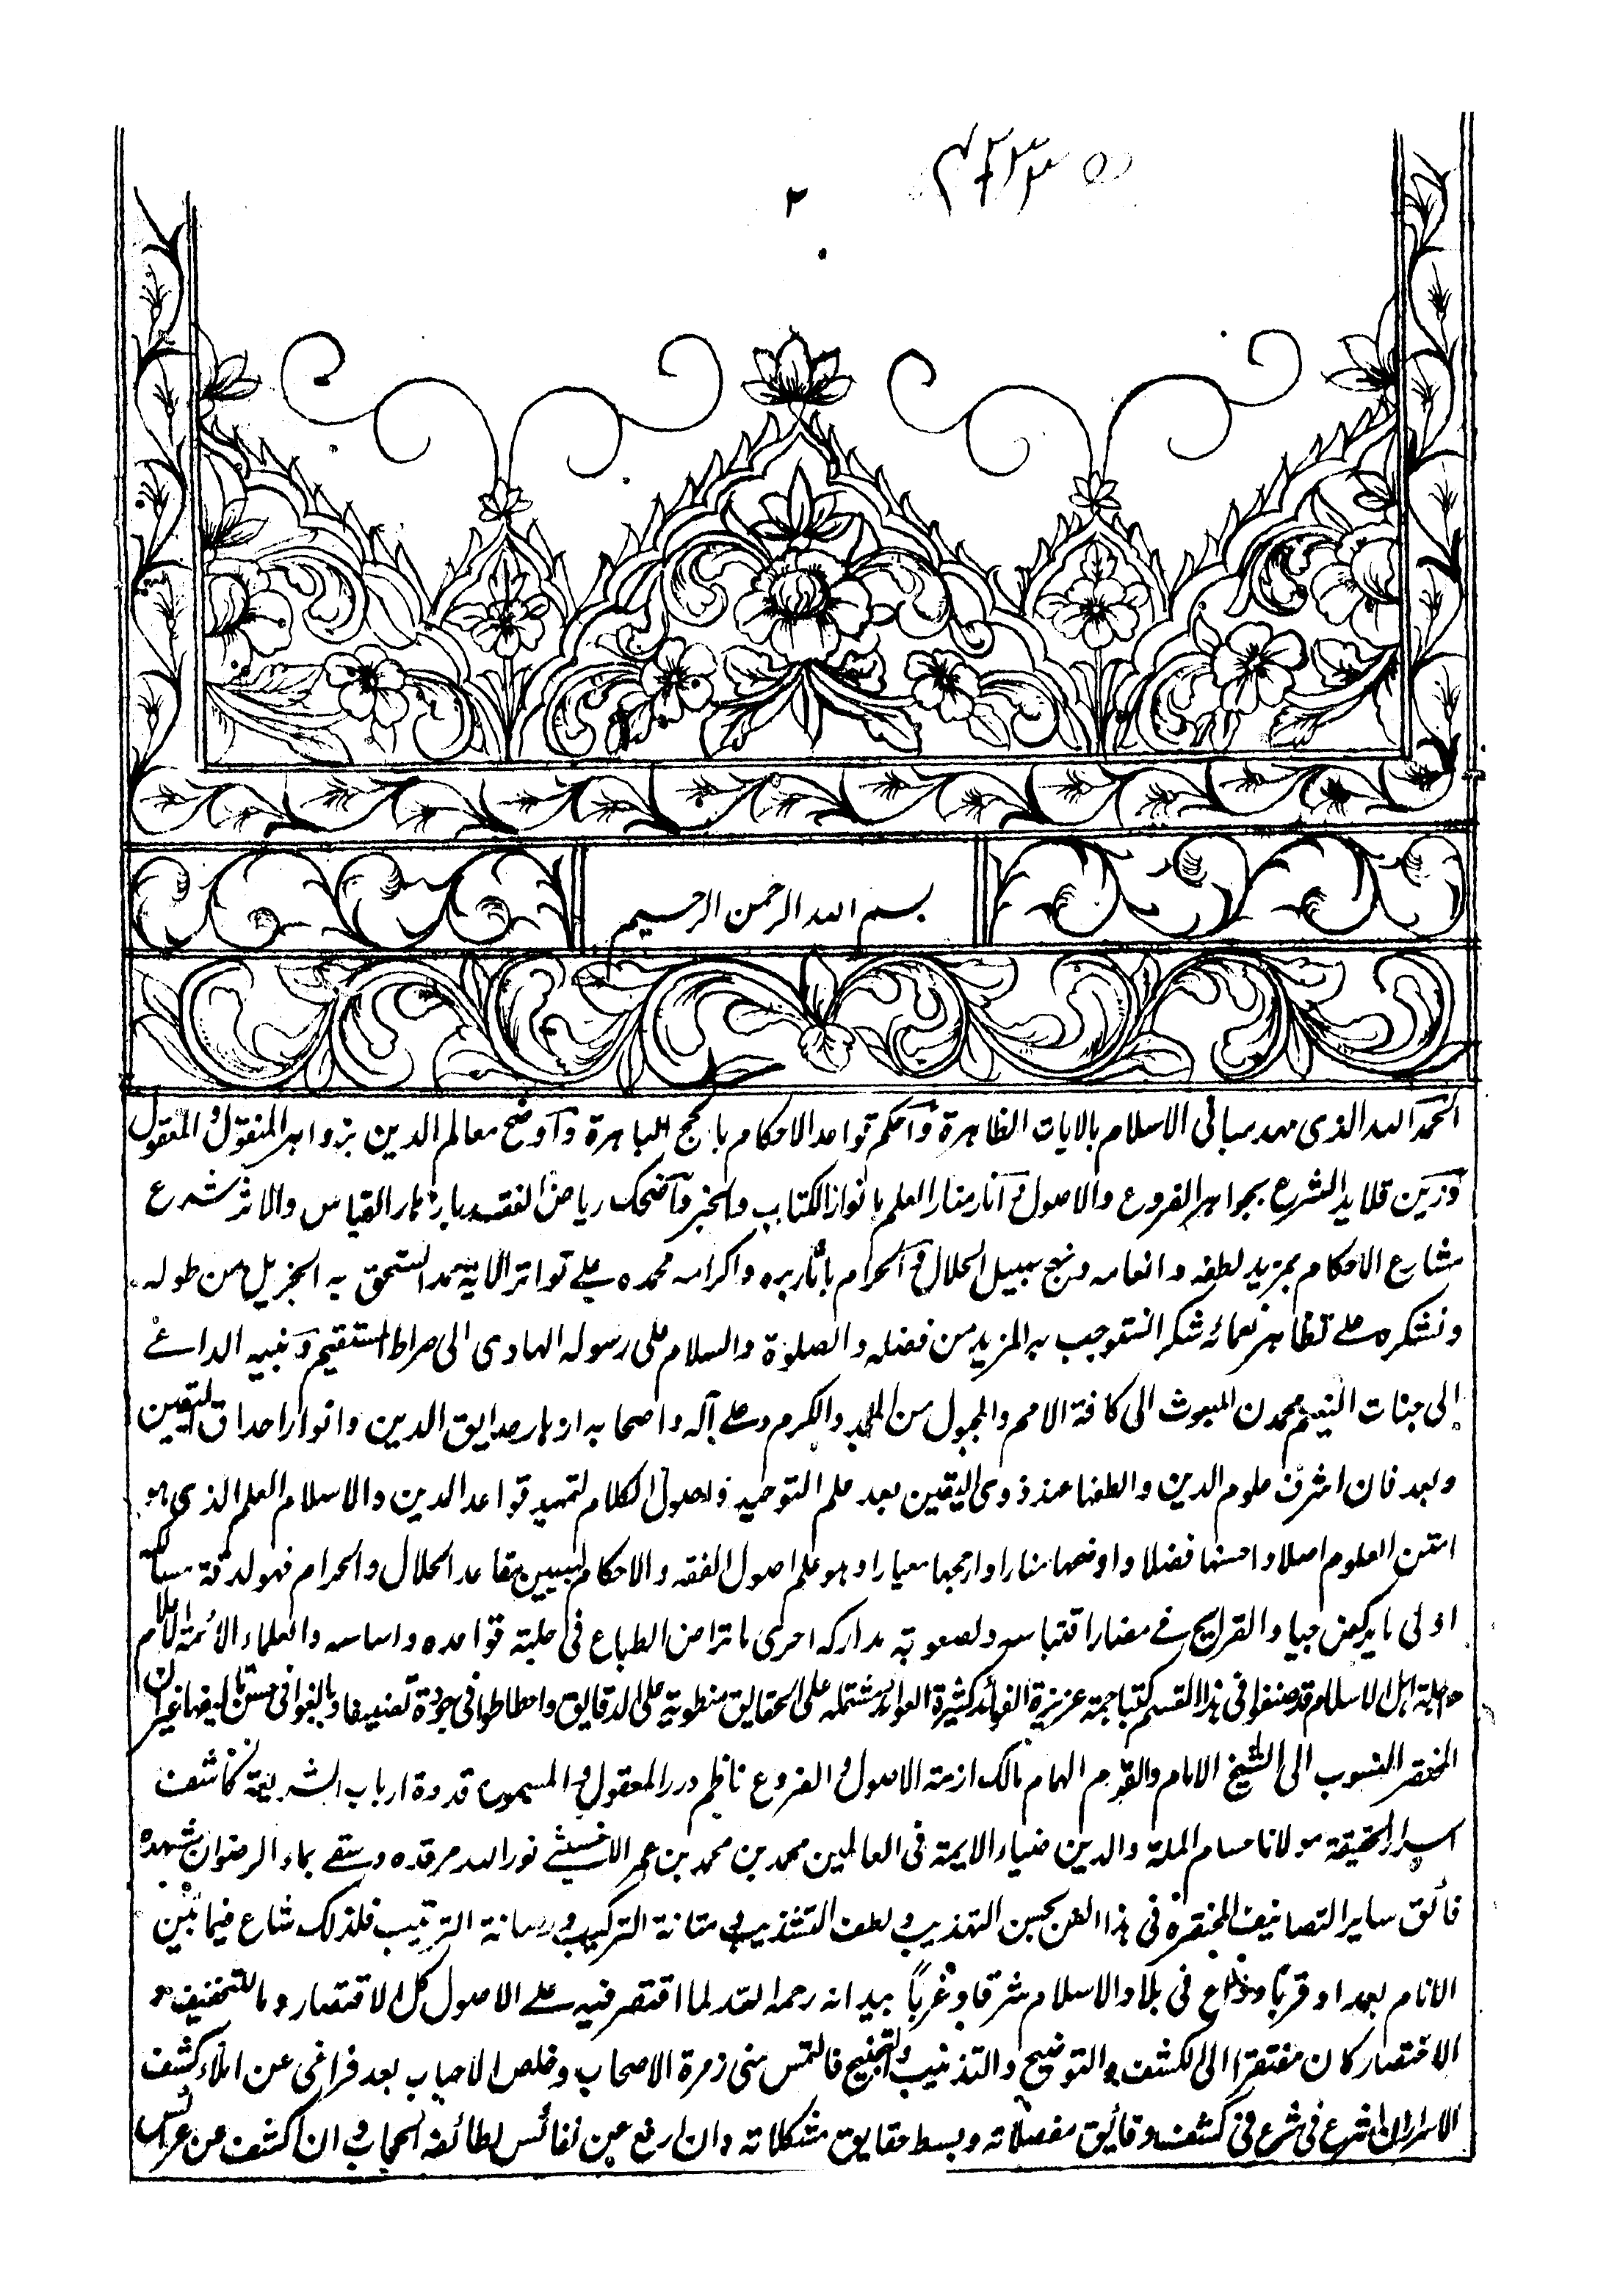 ٢
بسم الله الرحمن الرحيم
الحمد لله الذى مهد مبانى الاسلام بالايات الظاهرة وَاحكم قواعد الاحكام بالحجج الباهرة وَاوضح معالم الدين بزواهر المنقول و المعقول
وَزين قلايد الشرع بجواهر الفروع والاصول وَ انار منار العلم بانوار الكتاب والخبر وَاضحك رياض الفقه بازهار القياس والاثر شرع
مشارع الاحكام بمزيد لطفه وانعامه ونهج سبيل الحلال و الحرام باثار بره واكرامه نحمده على تواتر الايه حمد المستحق به الجزيل من طوله
ونشكره على تظاهر نعمائه شكر المستوجب به المزيد من فضله والصلوة والسلام على رسوله الهادى الى صراط المستقيم وَنبيه الداعى
إلى جنات النعيم محمدن المبعوث الى كافة الامم والمجبول من المجد والكرم وعلى آله واصحابه ازهار حدايق الدين وانوار احداق اليقين
وبعد فان اشرف علوم الدين والطفها عند ذوى اليقين بعد علم التوحيد واصول الكلام لتمهيد قواعد الدين والاسلام العلم الذى هو
امتن العلوم اصلا واحسنها فضلا واوضحها منارا وارجحها معيارا وهو علم اصول الفقه والاحكام لتبيين مقاعد الحلال والحرام فهو لدقة مسالكه
اولى ما يركض جياد القرايح فى مضمار اقتباسه ولصعوبة مداركه احرى ما تراض الطباع فى حلبة قواعده واساسه والعلماء الائمة الاعلام
واجلة اهل الاسلام قد صنفوا فى هذا القسم كتبا جمة عزيزة الفوائد كثيرة العوائد مشتملة على الحقايق منطوية على الدقايق واحاطوا فى جودة تصنيفها وبالغوا فى حسن تاليفها غير ان
المختصر المنسوب الى الشيخ الامام والقرم الهمام مالك ازمة الاصول و الفروع ناظم درر المعقول و المسموع قدوة ارباب الشريعة كاشف
اسرار الحقيقة مولانا حسام الملة والدين ضياء الايمة فى العالمين محمد بن محمد بن عمر الاخسيكثى نور الله مرقده وسقى بماء الرضوان مشهده
فائق ساير التصانيف المختصرة فى هذا الفن بحسن التهذيب ولطف التشذيب و متانة التركيب ورصانة الترتيب فلذلك شاع فيما بين
الانام بعدا وقربًا وذاع فى بلاد الاسلام شرقا وغربًا بيد انه رحمه الله لما اقتصر فيه على الاصول كل الاقتصار ومال للتخفيف و
الاختصار كان مفتقرا الى الكشف والتوضيح والتذنيب والتنقيح فالتمس منى زمرة الاصحاب وخلص الاحباب بعد فراغى عن املاء كشف
الاسرار ان اشرع فى شرع فى كشف دقائق مفصلاته وبسط حقايق مشكلاته وان ارفع عن نفائس لطائفه الحجاب و ان اكشف عن عرائس